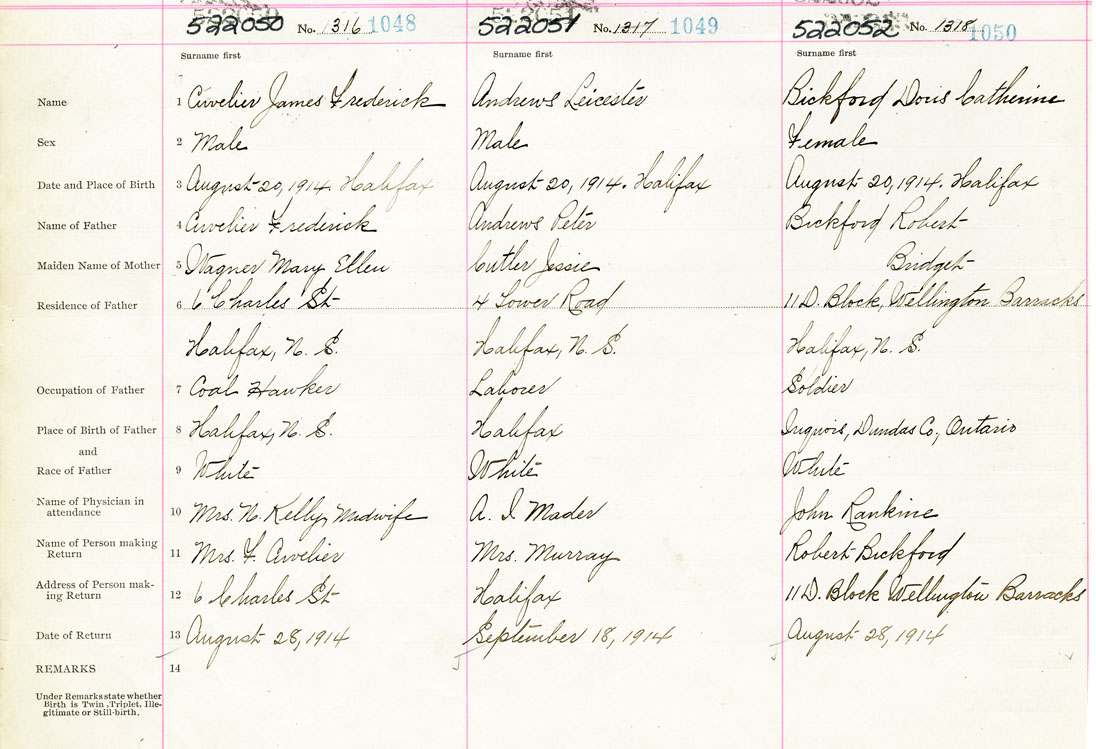 522050 No. 1316 1048 522051 No. 1317 1049 522052 No. 1318 1050
Surname first Surname first Surname first
Name 1 Cuvelier James Frederick Andrews Leicester Bickford Doris Catherine
Sex 2 Male Male Female
Date and Place of Birth 3 August 20, 1914. Halifax August 20, 1914. Halifax August 20, 1914. Halifax
Name of Father 4 Cuvelier Frederick Andrews Peter Bickford Robert
Maiden Name of Mother 5 Wagner Mary Ellen Cutler Jessie Bridget
Residence of Father 6 6 Charles St 4 Lower Road 11 D. Block, Wellington Barracks
Halifax, N. S. Halifax, N. S. Halifax, N. S.
Occupation of Father 7 Coal Hawker Laborer Soldier
Place of Birth of Father 8 Halifax, N. S. Halifax Dundas Co., Ontario
and
Race of Father 9 White White White
Name of Physician in
attendance 10 Mrs. N. Kelly, Midwife A. I. Mader John Rankine
Name of Person making
Return 11 Mrs. F. Cuvelier Mrs. Murray Robert Bickford
Address of Person mak-
ing Return 12 6 Charles St Halifax 11 D. Block Wellington Barracks
Date of Return 13 August 28, 1914 September 18, 1914 August 28, 1914
REMARKS 14
Under Remarks state whether
Birth is Twin, Triplet, Ille-
gitimate or Still-birth.